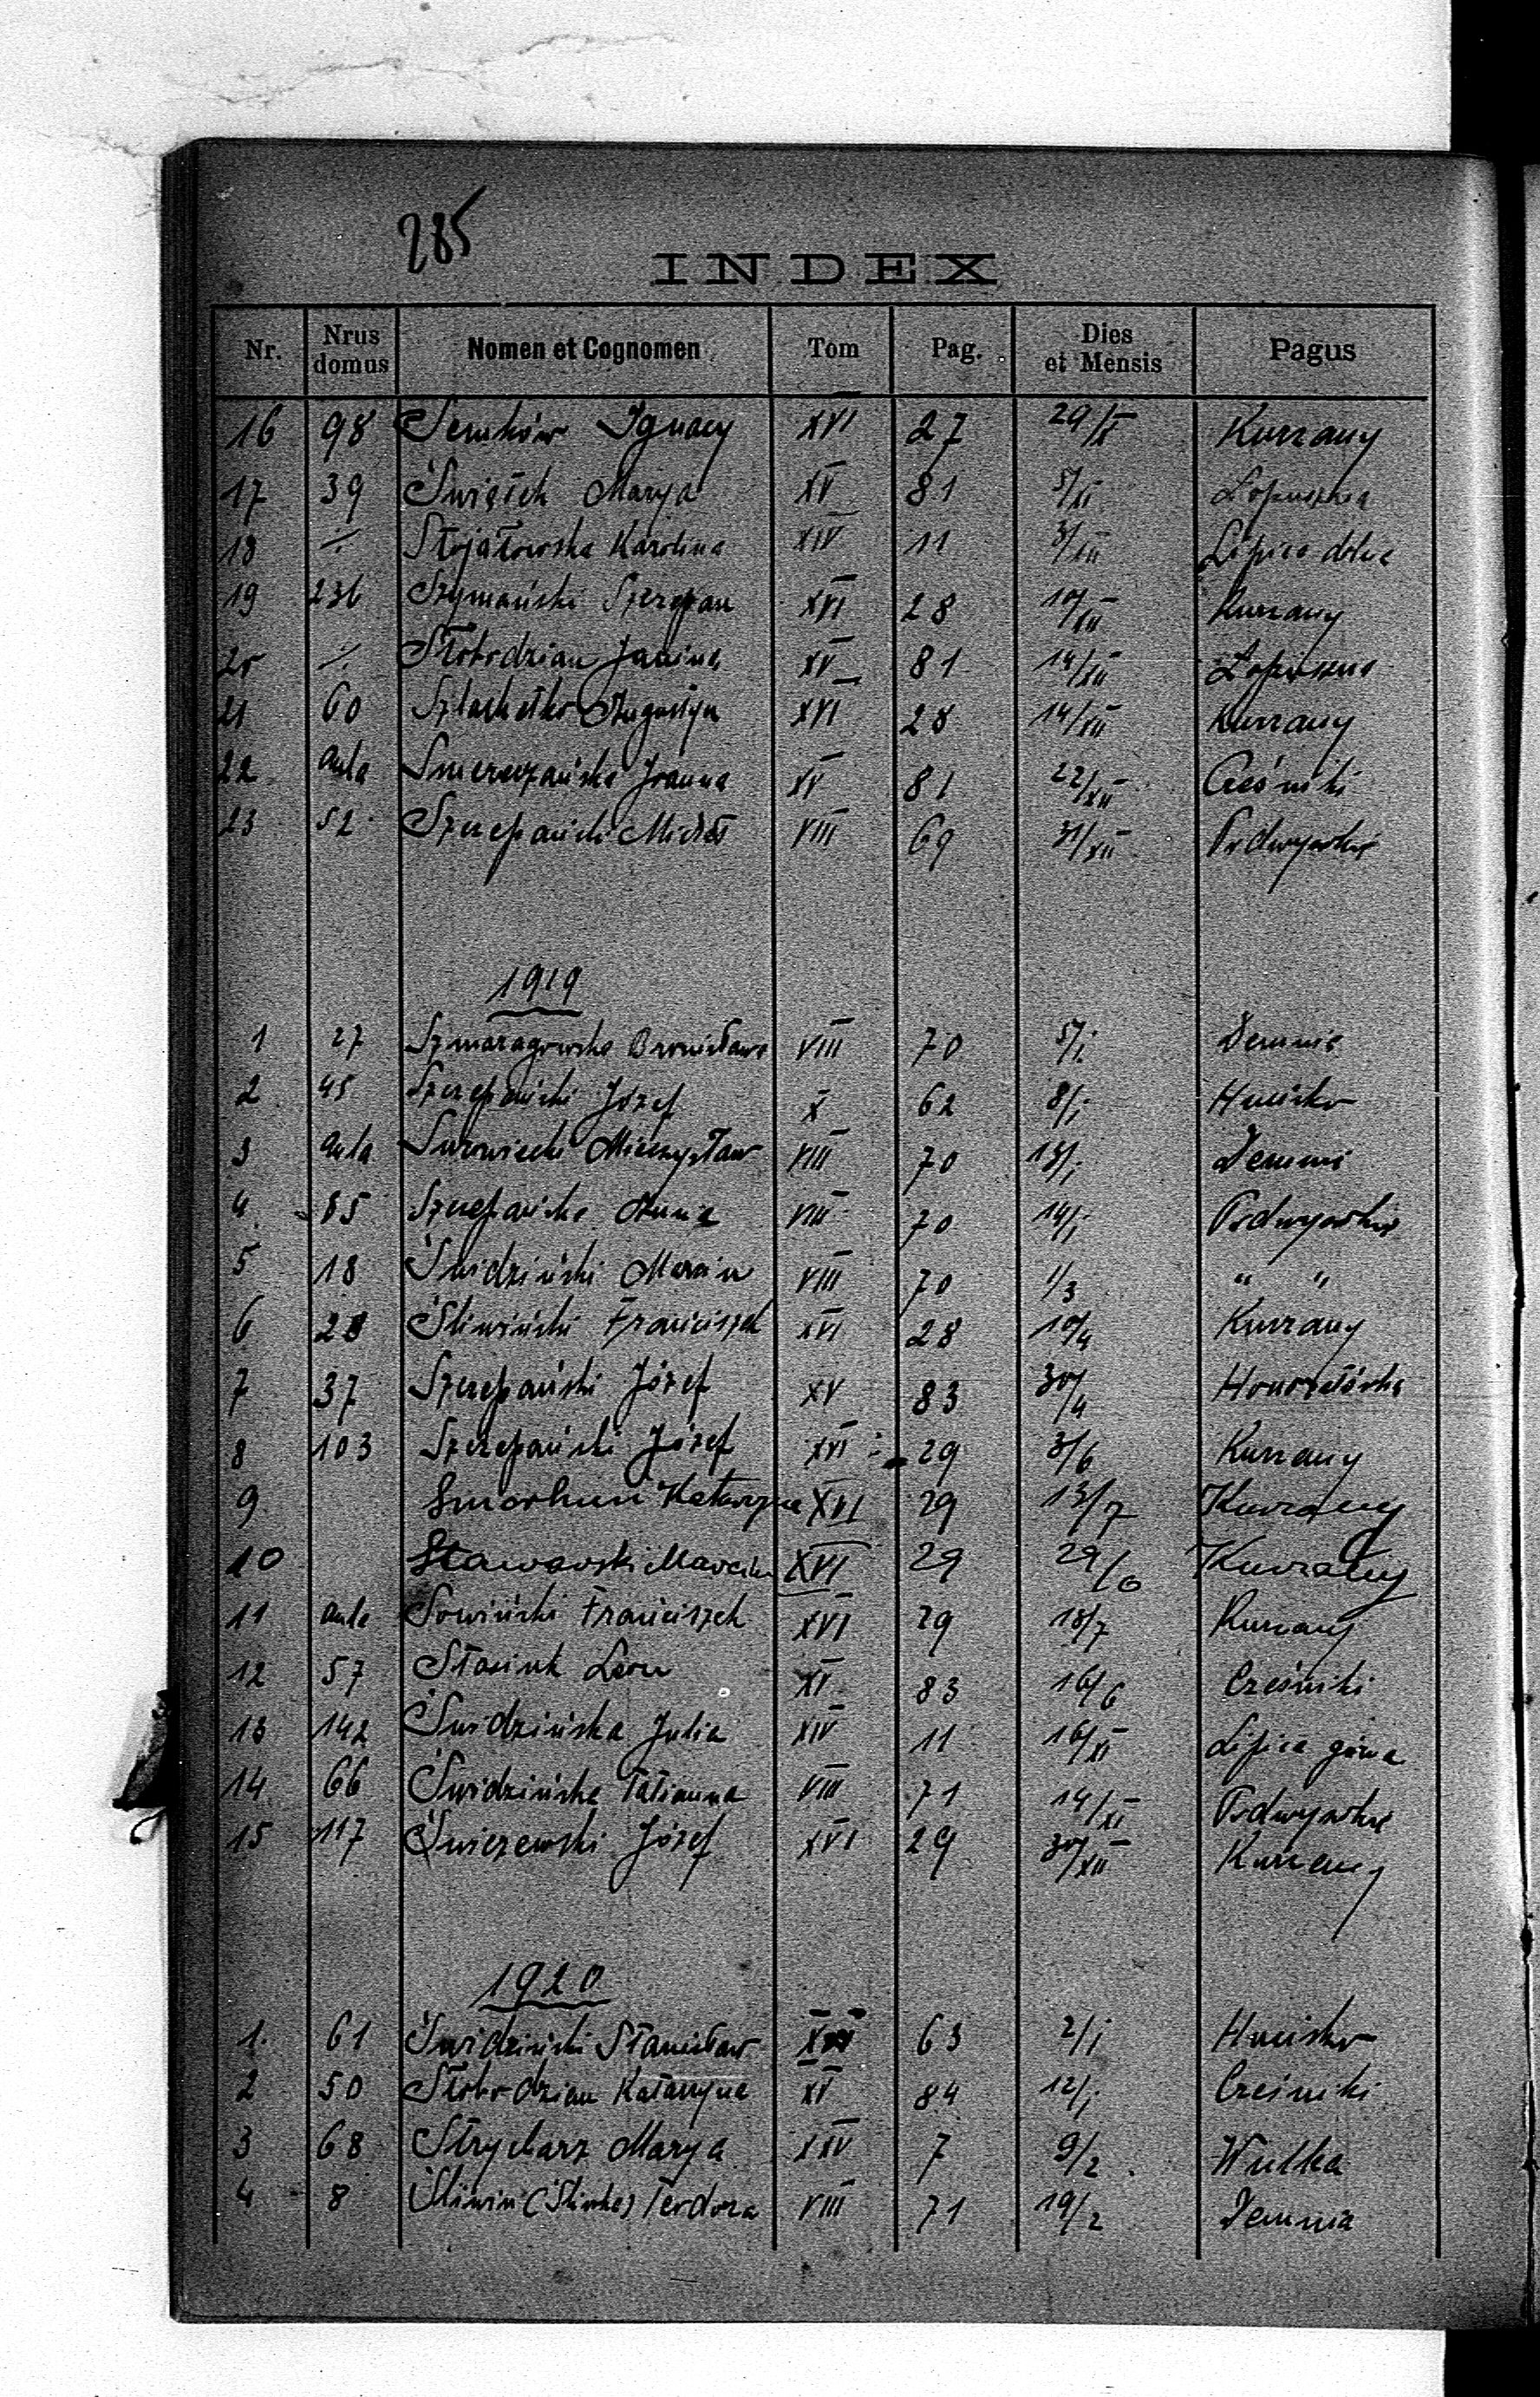 285
INDEX
Nr. Nrus domus Nomen et Cognomen Tom Pag. Dies et Mensis Pagus
16 98 Semków Ignacy XVI 27 29/X Kurzany
17 39 Świętek Marya XV 81 5/XI Łopuszna
18 ·/· Stojałowska Karolina XIV 11 3/XII Lipica dolna
19 236 Szymański Szczepan XVI 28 10/XII Kurzany
20 ·/· Słobodzian Janina XV 81 14/XII Łopuszna
21 60 Szlachetko Augustyn XVI 28 14/XII Kurzany
22 aula Smereczańska Joanna XV 81 22/XII Cześniki
23 52 Szczepański Michał VIII 69 31/XII Podwysokie
1919
1 27 Szmaragowska Bronisława VIII 70 5/I Demnia
2 45 Szczepański Józef X 62 8/I Hucisko
3 aula Surowiecki Mieczysław VIII 70 13/I Demnia
4 85 Szczepańska Anna VIII 70 14/I Podwysokie
5 18 Świdziński Marcin VIII 70 1/3 " "
6 28 Śliwiński Franciszek XVI 28 10/4 Kurzany
7 37 Szczepański Józef XV 83 30/4 Honoratówka
8 103 Szczepański Józef XVI 29 3/6 Kurzany
9 Smorhun Katarzyna XVI 29 13/7 Kurzany
10 Stawarski Marcin XVI 29 29/6 Kurzany
11 aula Sowiński Franciszek XVI 29 18/7 Kurzany
12 57 Stasiuk Leon XV 83 16/6 Cześniki
13 142 Świdzińska Julia XIV 11 16/XI Lipica górna
14 66 Świdzińska Tatianna VIII 71 14/XI Podwysokie
15 117 Świczewski Józef XVI 29 30/XII Kurzany
1920
1. 61 Świdziński Stanisław X 63 2/I Hucisko
2 50 Słobodzian Katarzyna XV 84 12/I Cześniki
3 68 Strycharz Marya XXV 7 9/2 Wulka
4 8 Śliwin (Śliwka) Teodora VIII 71 19/2 Demnia